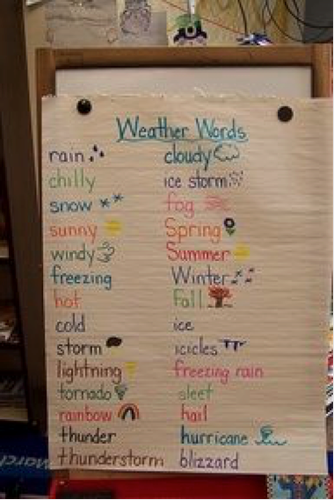 Weather Words
rain cloudy
chilly ice storm
snow fog
sunny Spring
windy Summer
freezing Winter
hot Fall
cold ice
storm icicles
lightning freezing rain
tornado sleet
rainbow hail
thunder hurricane
thunderstorm blizzard
March